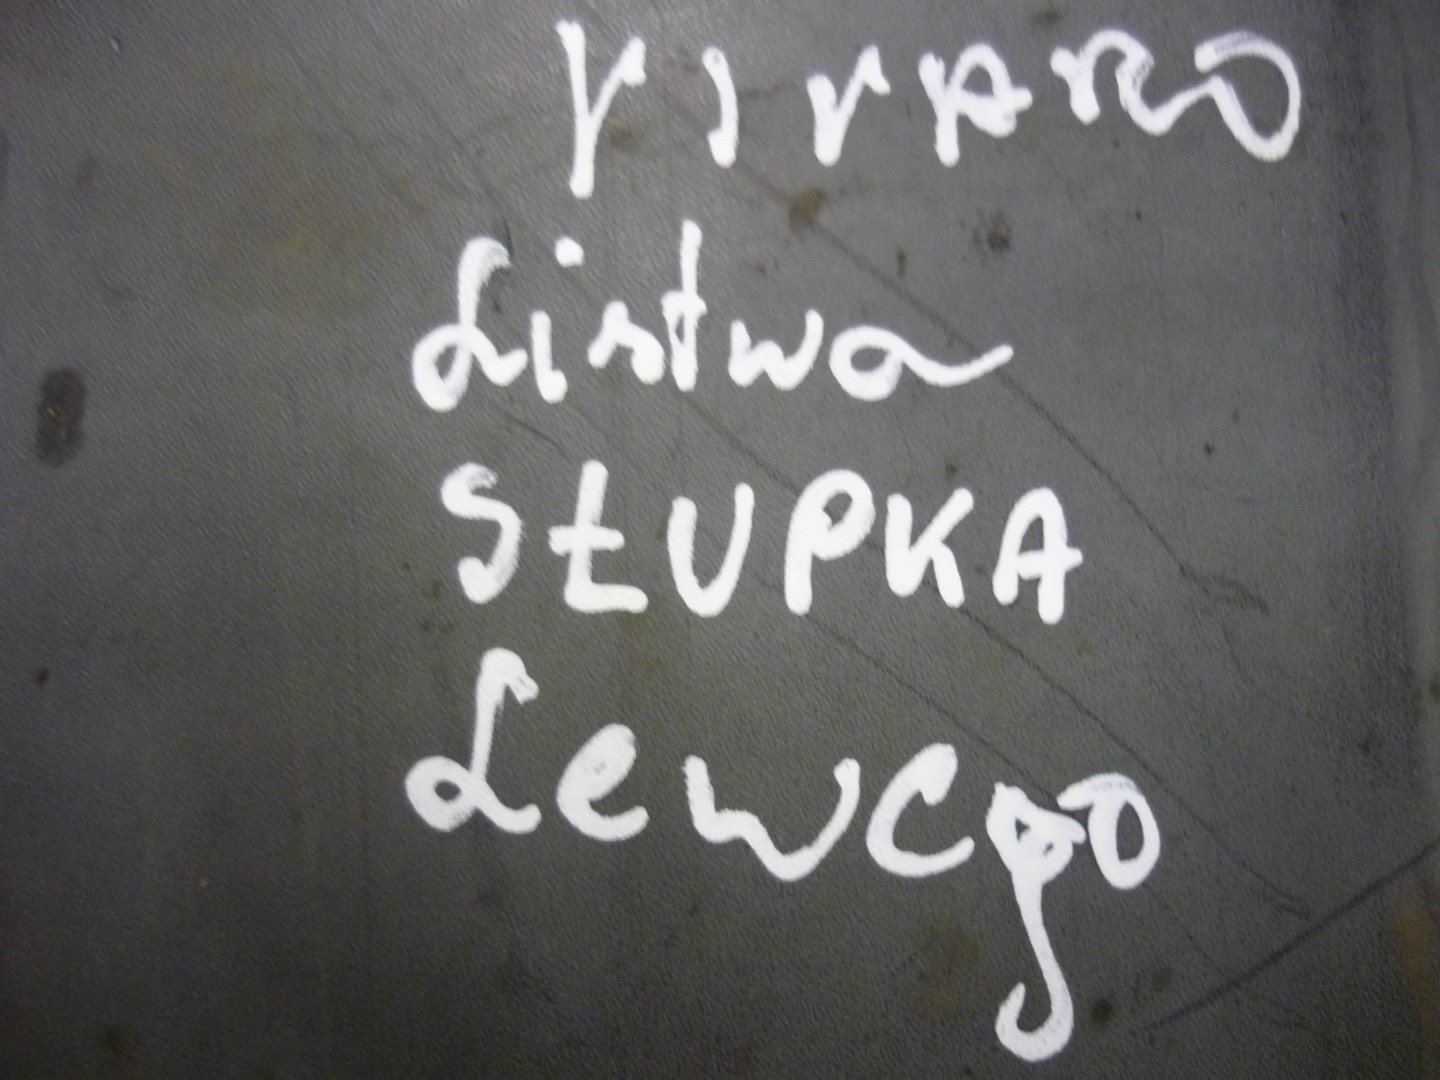 VIVARO
Listwa
SŁUPKA
Lewego